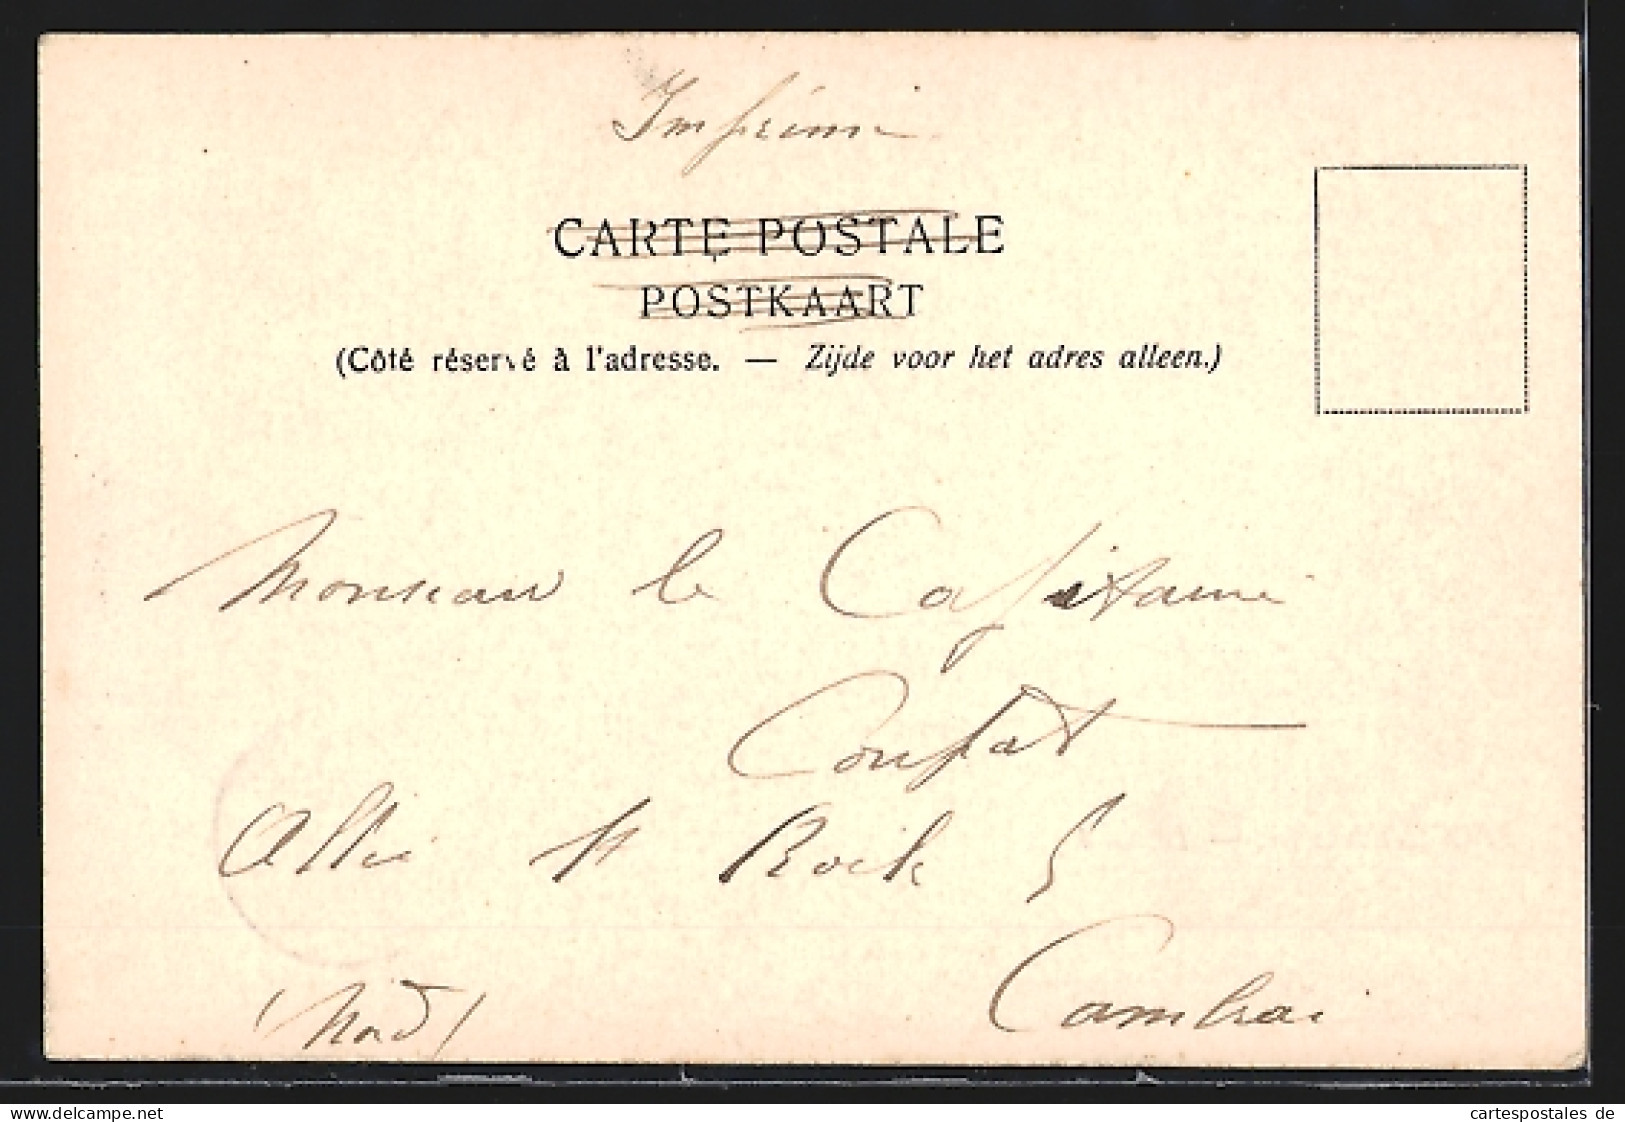 Imprimé
CARTE POSTALE
POSTKAART
(Côté réservé à l'adresse. — Zijde voor het adres alleen.)
Monsieur le Capitaine
Coupat
St Roch 5
Cambrai
(Nord)
www.delcampe.net
cartespostales de